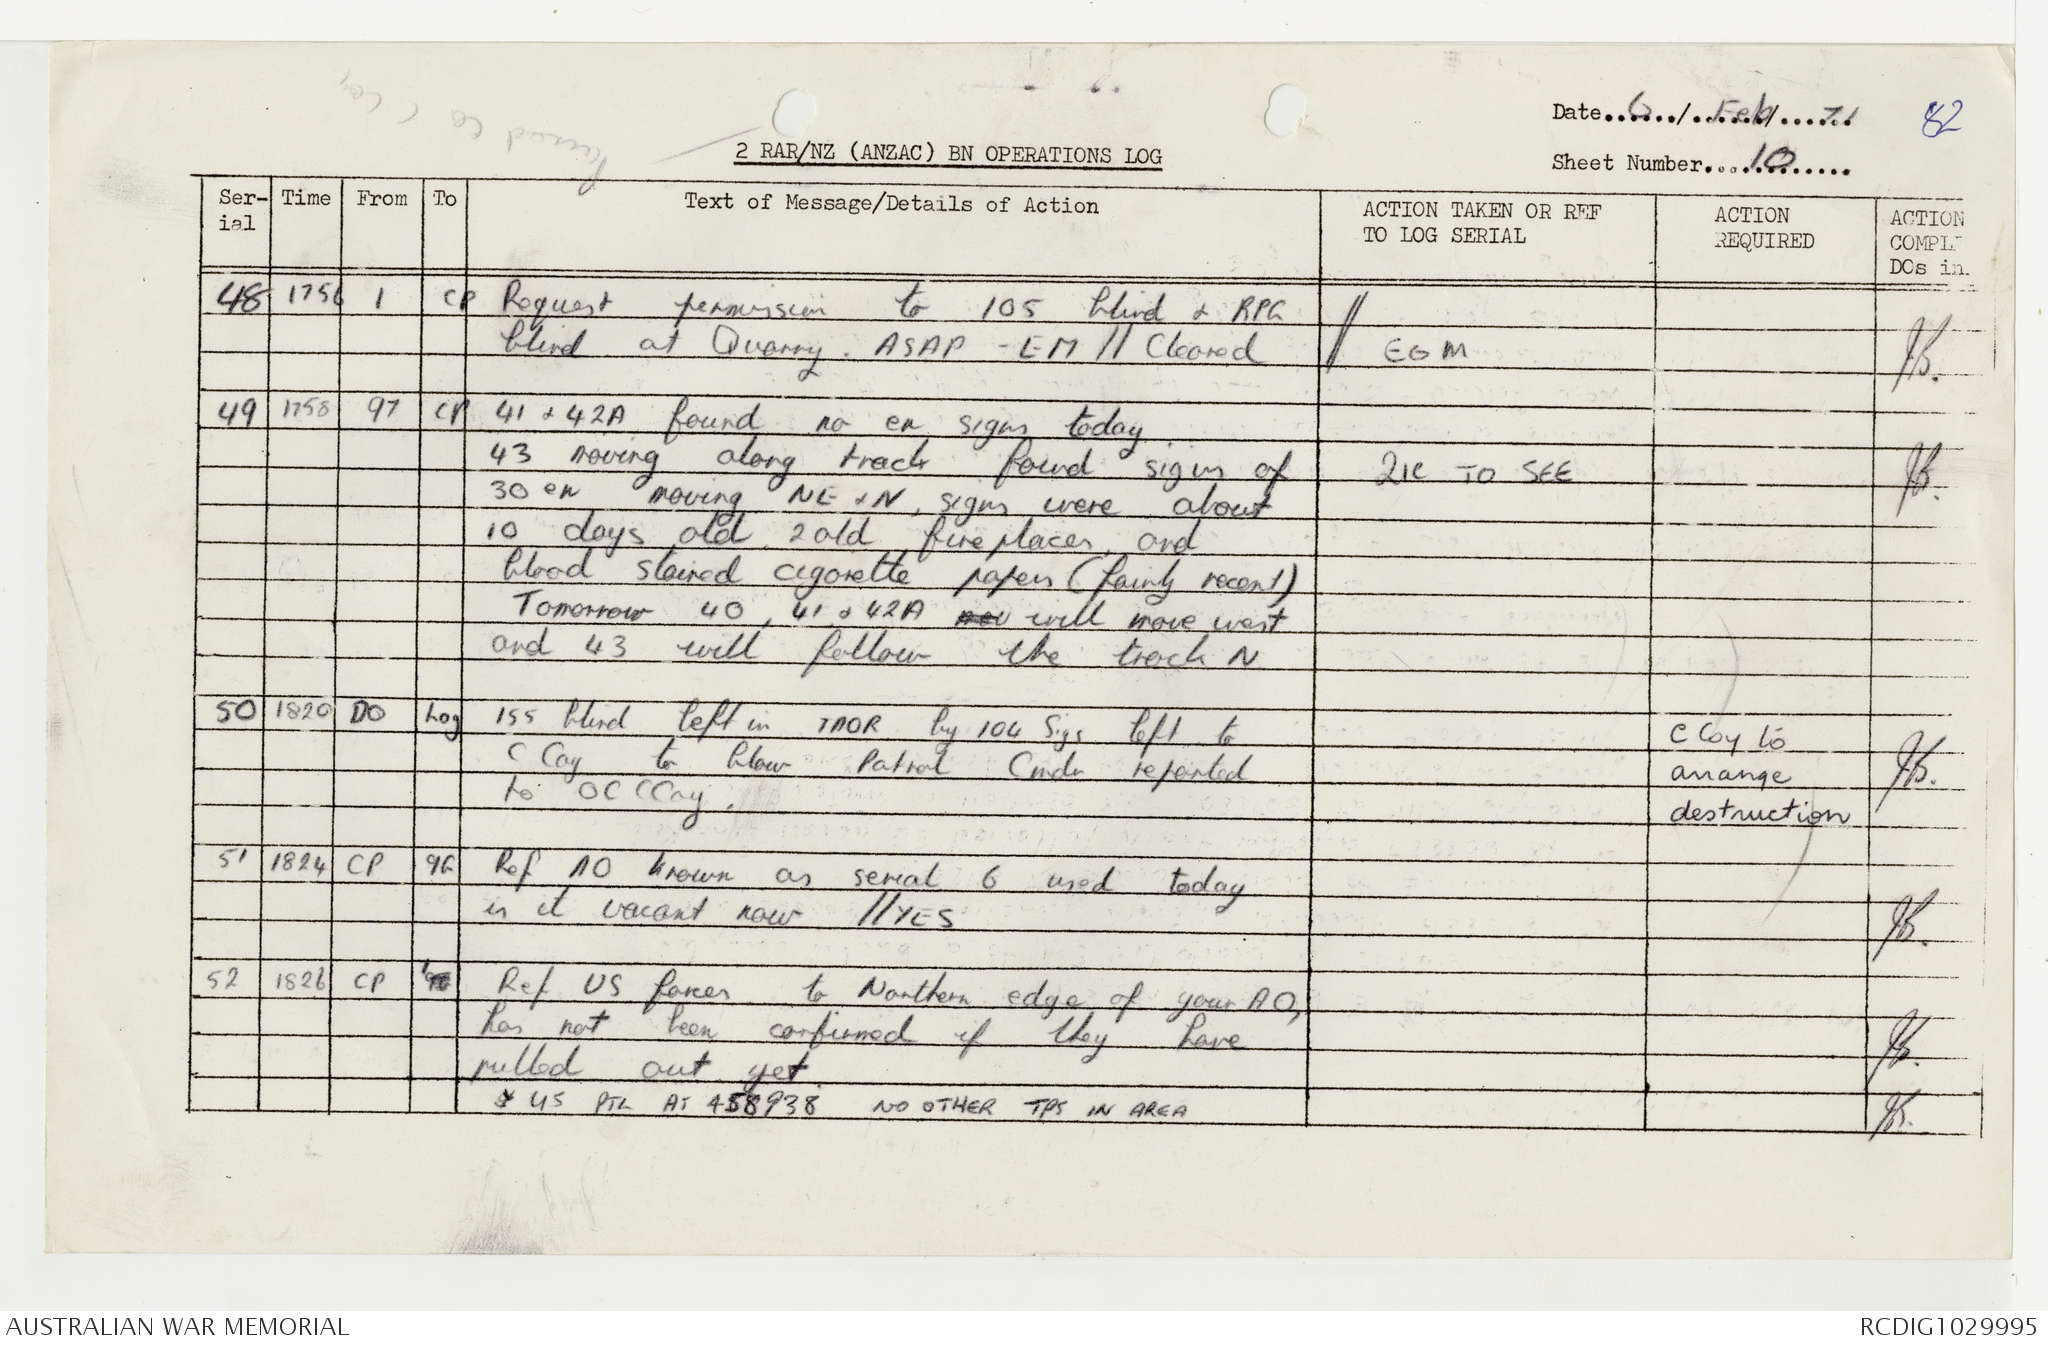 Date 6 / Feb / 71
82
2 RAR/NZ (ANZAC) BN OPERATIONS LOG
Sheet Number 10
Ser-
ial
Time
From
To
Text of Message/Details of Action
ACTION TAKEN OR REF
TO LOG SERIAL
ACTION
REQUIRED
ACTION
COMPL
DOs in.
48 1756 1 CP Request permission to 105 blind & RPG
blind at Quarry. ASAP - EM // Cleared // EGM
49 1758 97 CP 41 & 42A found no en signs today.
43 moving along track found signs of 2IC TO SEE
30 en moving NE & N, signs were about
10 days old. 2 old fireplaces and
blood stained cigarette papers (fairly recent)
Tomorrow 40, 41 & 42A will move west
and 43 will follow the track N
50 1820 DO Log 155 blind left in TAOR by 104 Sigs left to C Coy to
C Coy to blow Patrol Cmdr reported arrange
to OC C Coy. destruction
51 1824 CP 9G Ref AO known as serial 6 used today
is it vacant now // YES
52 1826 CP Ref US forces to Northern edge of your AO,
has not been confirmed if they have
pulled out yet.
US PTL AT 458938 NO OTHER TPS IN AREA
AUSTRALIAN WAR MEMORIAL
RCDIG1029995